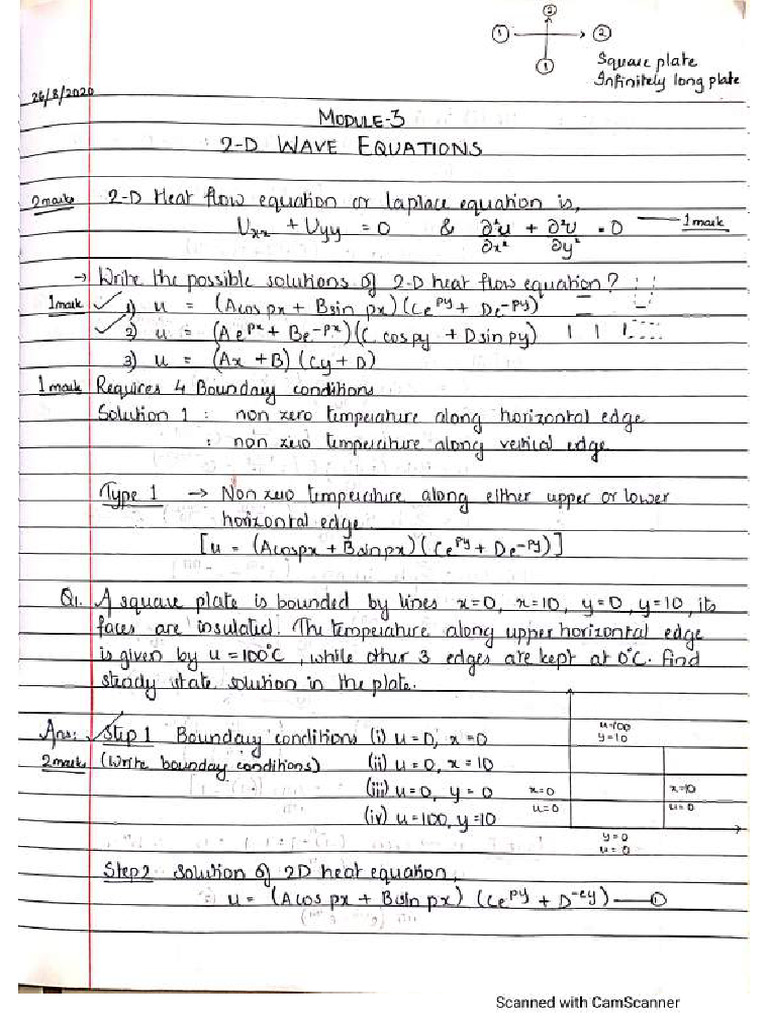 ② 
① → ②
①
Square plate
Infinitely long plate
26/8/2020
MODULE-3
2-D WAVE EQUATIONS
2marks 2-D Heat flow equation or laplace equation is,
Uxx + Uyy = 0 & ∂²u/∂x² + ∂²u/∂y² = 0 — 1 mark
→ Write the possible solutions of 2-D heat flow equation?
1 mark ✓ 1) u = (Acos px + Bsin px)(Ce^py + De^-py)
✓ 2) u = (Ae^px + Be^-px)(C cospy + Dsin py)
3) u = (Ax + B)(Cy + D)
1 mark Requires 4 Boundary conditions
Solution 1 : non zero temperature along horizontal edge
: non zero temperature along vertical edge
Type 1 → Non zero temperature along either upper or lower
horizontal edge
[u = (Acospx + Bsinpx)(Ce^py + De^-py)]
Q1. A square plate is bounded by lines x=0, x=10, y=0, y=10, its
faces are insulated. The temperature along upper horizontal edge
is given by u = 100°C, while other 3 edges are kept at 0°C. Find
steady state solution in the plate.
Ans: Step 1 Boundary conditions (i) u=0, x=0
2 marks (Write boundary conditions) (ii) u=0, x=10
(iii) u=0, y=0
(iv) u=100, y=10
u=100
y=10
x=0
u=0
x=10
u=0
y=0
u=0
Step2 Solution of 2D heat equation,
u = (Acos px + Bsin px) (Ce^py + D^-ey) — ①
Scanned with CamScanner